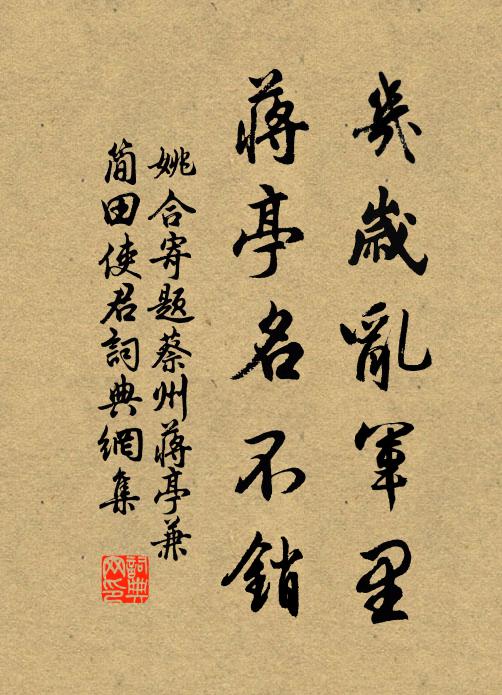 幾歲亂軍里
蔣亭名不銷
姚合寄題蔡州蔣亭兼
簡田使君詞典網集
詞典
网印